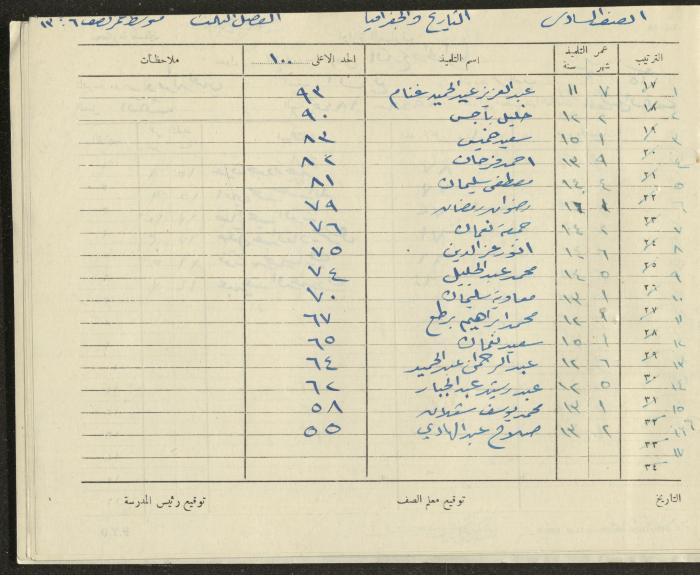 الصف السادس التاريخ والجغرافيا الفصل الثالث متوسط عمر الصف ١٣:٦
الترتيب عمر التلميذ شهر سنة اسم التلميذ الحد الاعلى ١٠٠ ملاحظات
١ ١٧ ٧ ١١ عبد العزيز عبد الحميد غنام ٩٣
٢ ١٨ ٢ ١٢ خليل ياجس ٩٠
٣ ١٩ ١ ١٥ سعيد خميس ٨٣
٤ ٢٠ ٩ ١٣ احمد فرحان ٨٢
٥ ٢١ ٤ ١٤ مصطفى سليمان ٨١
٦ ٢٢ ١ رضوان رمضان ٧٩
٧ ٢٣ ٢ ١٤ جمعة نعمان ٧٦
٨ ٢٤ ٦ ١٤ انور عز الدين ٧٥
٩ ٢٥ ٥ ١٤ محمد عبد الجليل ٧٤
١٠ ٢٦ ١ ١٣ معاوية سليمان ٧٠
١١ ٢٧ ٩ ١٢ محمد ابراهيم برطع ٦٧
١٢ ٢٨ ١ ١٥ سعيد نعمان ٦٥
١٣ ٢٩ ٦ ١٢ عبد الرحمن عبد الحميد ٦٤
١٤ ٣٠ ٥ ١٢ عبد رشيد عبد الجبار ٦٢
١٥ ٣١ ١ ١٣ محمد يوسف ٥٨
١٦ ٣٢ ٢ ١٣ صلاح عبد الهادي ٥٥
١٧ ٣٣
٣٤
التاريخ توقيع معلم الصف توقيع رئيس المدرسة